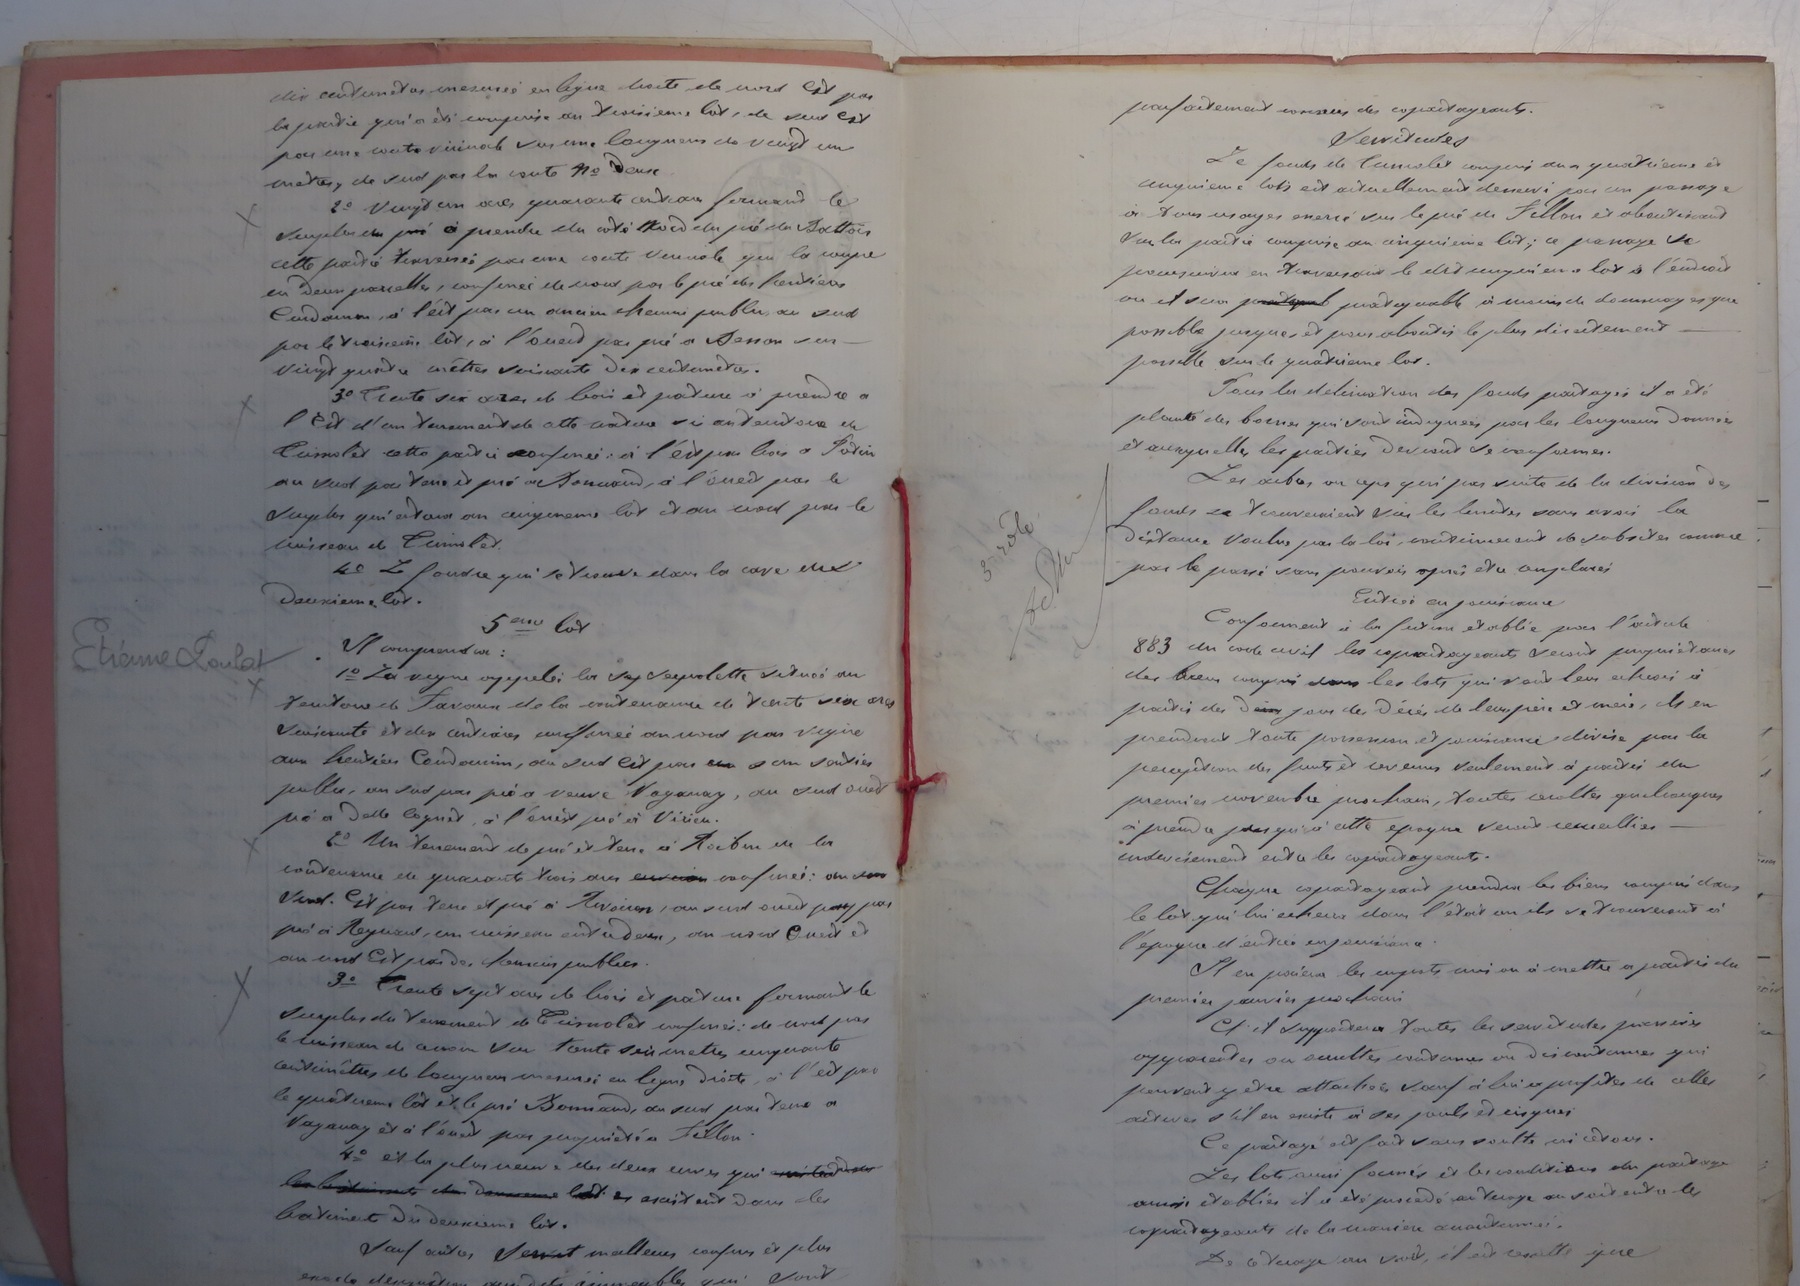 dix centimètres mesurée en ligne droite de nord Est par
la partie qui a été comprise au troisième lot, de sud Est
par une route vicinale sur une longueur de vingt un
mètres, de sud par la route N° Deux.
2° Vingt un ares quarante centiares formant le
surplus du pré à prendre du coté Nord du pré du
cette partie traversée par une route vicinale qui la coupe
en deux parcelles, confinée de nord par le pré des héritiers
Condamin, à l'Est par un ancien chemin public, au sud
par le troisième lot, à l'ouest par pré a Besson sur
vingt quatre mètres soixante dix centimètres.
3° Trente six ares de bois et pature à prendre a
l'Est d'un tenement de cette nature si au territoire de
Cumolet cette partie confinée: à l'Est par bois a
au sud par terre et pré a Bonnand, à l'ouest par le
surplus qui entrera au cinquième lot et au nord par le
ruisseau de Cumolet.
4° Le foudre qui se trouve dans la cave du
deuxième lot.
5eme lot
Etienne Poulat
Il comprendra:
1° La vigne appelée la située au
territoire de Favaun de la contenance de trente six ares
soixante et dix centiares confinée au nord par vigne
aux héritiers Condamin, au sud Est par un sentier
public, au sud par pré a veuve Vaganay, au sud ouest
pré a Delle Cognet, à l'ouest pré à Virieu.
2° Un tenement de pré et terre à de la
contenance de quarante trois ares confiné: au
sud. Est par terre et pré à, au sud ouest par
pré à Reynard, un ruisseau entre deux, au nord Ouest et
au nord Est par des chemins publics.
3° Trente sept ares de bois et pature formant le
surplus du tenement de Cumolet confiné: de nord par
le ruisseau de ce nom sur trente six mètres cinquante
centimètres de longueur mesurée en ligne droite, à l'Est par
le quatrième lot et le pré Bonnand, au sud par terre a
Vaganay et à l'ouest par propriété a Fillon.
4° et la plus neuve des deux cuves qui
existent dans les
batiment du deuxième lot.
Sauf autres meilleurs confins et plus
exacte désignation des dits immeubles qui sont
parfaitement connus des copartageants.
Servitudes
Le fonds de Cumolet compris aux quatrième et
cinquième lots est actuellement desservi par un passage
à tous usages exercé sur le pré de Fillon et aboutissant
sur la partie comprise au cinquième lot; ce passage se
poursuivra en traversant le dit cinquième lot à l'endroit
ou il sera praticable à moins de dommages que
possible jusques et pour aboutir le plus directement
possible sur le quatrième lot.
Pour la délimitation des fonds partagés il a été
planté des bornes qui sont indiquées par les longueurs données
et auxquelles les parties devront se conformer.
Les arbres ou ceps qui par suite de la division des
fonds se trouveraient sur les limites sans avoir la
distance voulue par la loi, continueront de subsister comme
par le passé sans pouvoir après être remplacés
3e rôle
Entrée en jouissance
Conforment à la fiction établie par l'article
883 du code civil les copartageants seront propriétaires
des biens compris dans les lots qui sont leur echus à
partir des jour des décès de leurs père et mère, ils en
prendront toute possession et jouissance divise par la
perception des fruits et revenus seulement à partir du
premier novembre prochain, toutes récoltes quelconques
à prendre jusqu'à cette epoque seront recueillies
indivisément entre les copartageants.
Chaque copartageant prendra les biens compris dans
le lot qui lui echerra dans l'état ou ils se trouveront à
l'epoque d'entrée en jouissance.
Il en paiera les impots mis ou à mettre a partir du
premier janvier prochain
Et il supportera toutes les servitudes passives
apparentes ou occultes continues ou discontinues qui
peuvent y être attachées sauf à lui a profiter de celles
actives s'il en existe à ses périls et risques
Ce partage est fait sans soulte ni retour.
Les lots ainsi formés et les conditions du partage
ainsi établies il a été procédé au tirage au sort entre les
copartageants de la manière accoutumée.
De ce tirage au sort, il est résulté que